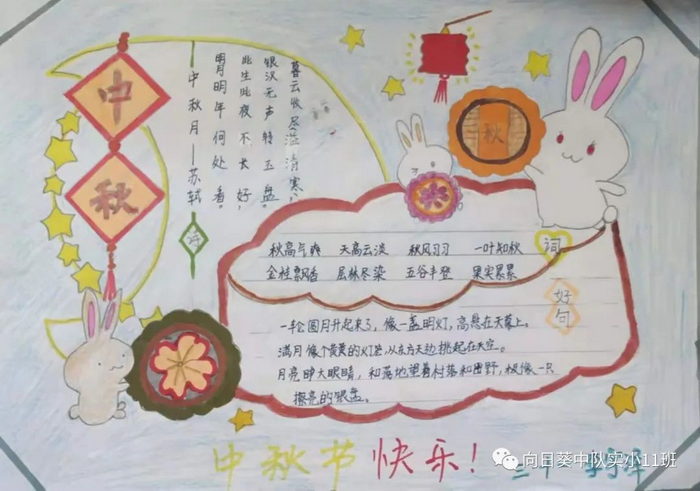 中
秋
暮云收尽溢清寒，
银汉无声转玉盘。
此生此夜不长好，
明月明年何处看。
中秋月——苏轼
诗
秋
秋高气爽 天高云淡 秋风习习 一叶知秋
金桂飘香 层林尽染 五谷丰登 果实累累
词
好句
一轮圆月升起来了，像一盏明灯，高悬在天幕上。
满月像个黄黄的灯，从东方天边挑起在天空。
月亮睁大眼睛，和地望着村落和田野，极像一只
擦亮的银盘。
中秋节快乐！
向日葵中队实小11班